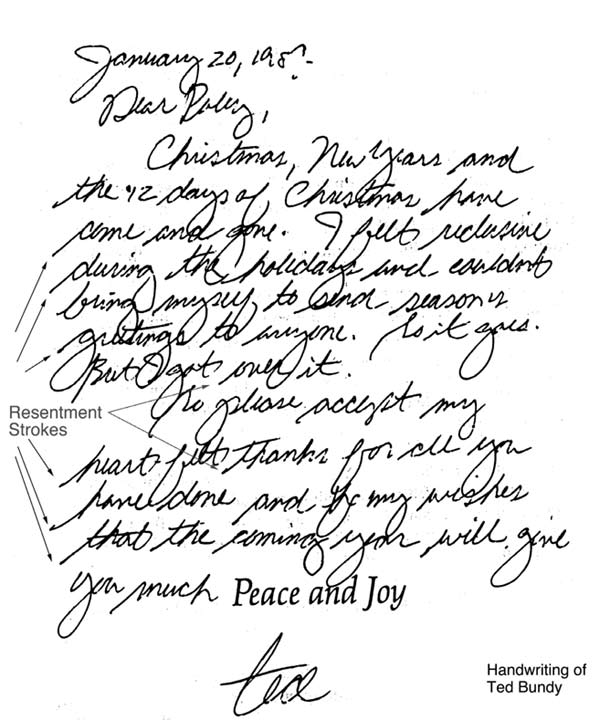 January 20, 198
Dear
Christmas, New Years and
the 12 days of Christmas have
come and gone. I felt reclusive
during the holidays and couldn't
bring myself to send season's
greetings to anyone. So it goes.
But I got over it.
So please accept my
Resentment
Strokes
heart felt thanks for all you
have done and for my wishes
that the coming year will give
you much Peace and Joy
ted
Handwriting of
Ted Bundy